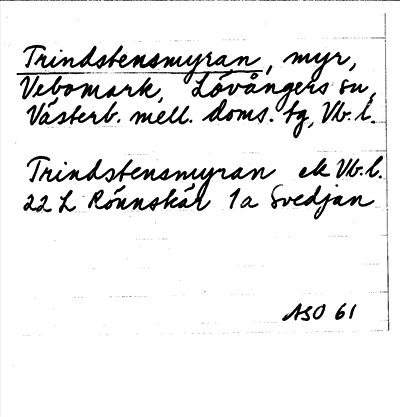 Trindstensmyran, myr,
Vebomark, Lövångers sn,
Västerb. mell. doms. tg, Vb. l.
Trindstensmyran ek Vb. l.
22 L Rönnskär 1a Svedjan
ASO 61